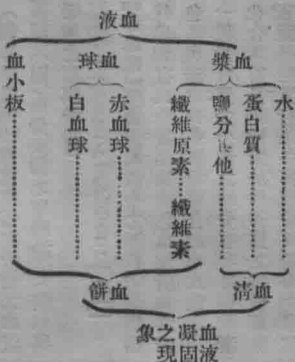 血液
血漿
血球
血小板
水
蛋白質
鹽分其他
纖維原素……纖維素
赤血球
白血球
血清
血餅
血液凝固之現象